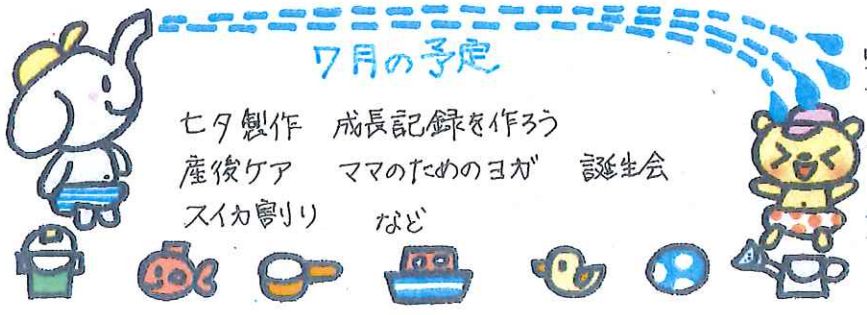 7月の予定
七夕製作 成長記録を作ろう
産後ケア ママのためのヨガ 誕生会
スイカ割り など